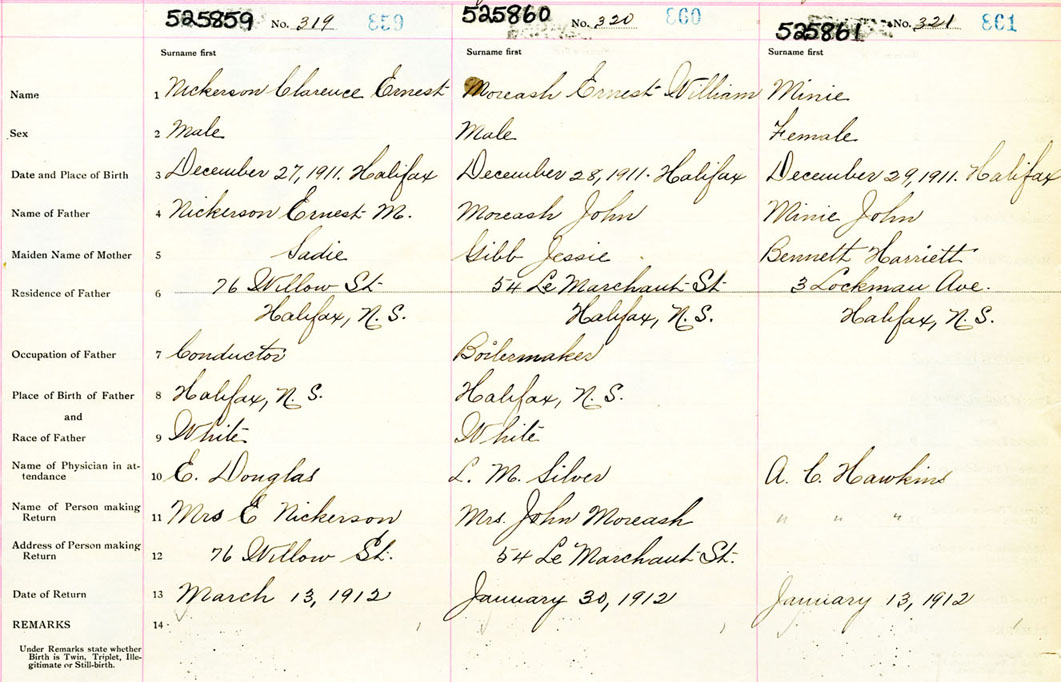 525859 No. 319 859 525860 No. 320 860 525861 No. 321 861
Surname first Surname first Surname first
Name 1 Nickerson Clarence Ernest Moreash Ernest William Minie
Sex 2 Male Male Female
Date and Place of Birth 3 December 27, 1911. Halifax December 28, 1911. Halifax December 29, 1911. Halifax
Name of Father 4 Nickerson Ernest M. Moreash John Minie John
Maiden Name of Mother 5 Sadie Gibb Jessie Bennett Harriett
Residence of Father 6 76 Willow St. 54 Le Marchant St 3 Lockman Ave.
Halifax, N.S. Halifax, N.S. Halifax, N.S.
Occupation of Father 7 Conductor Boilermaker
Place of Birth of Father 8 Halifax, N.S. Halifax, N.S.
and
Race of Father 9 White White
Name of Physician in at-
tendance 10 E. Douglas L. M. Silver A. C. Hawkins
Name of Person making
Return 11 Mrs E Nickerson Mrs. John Moreash " " "
Address of Person making
Return 12 76 Willow St. 54 Le Marchant St.
Date of Return 13 March 13, 1912 January 30, 1912 January 13, 1912
REMARKS 14
Under Remarks state whether
Birth is Twin, Triplet, Ille-
gitimate or Still-birth.